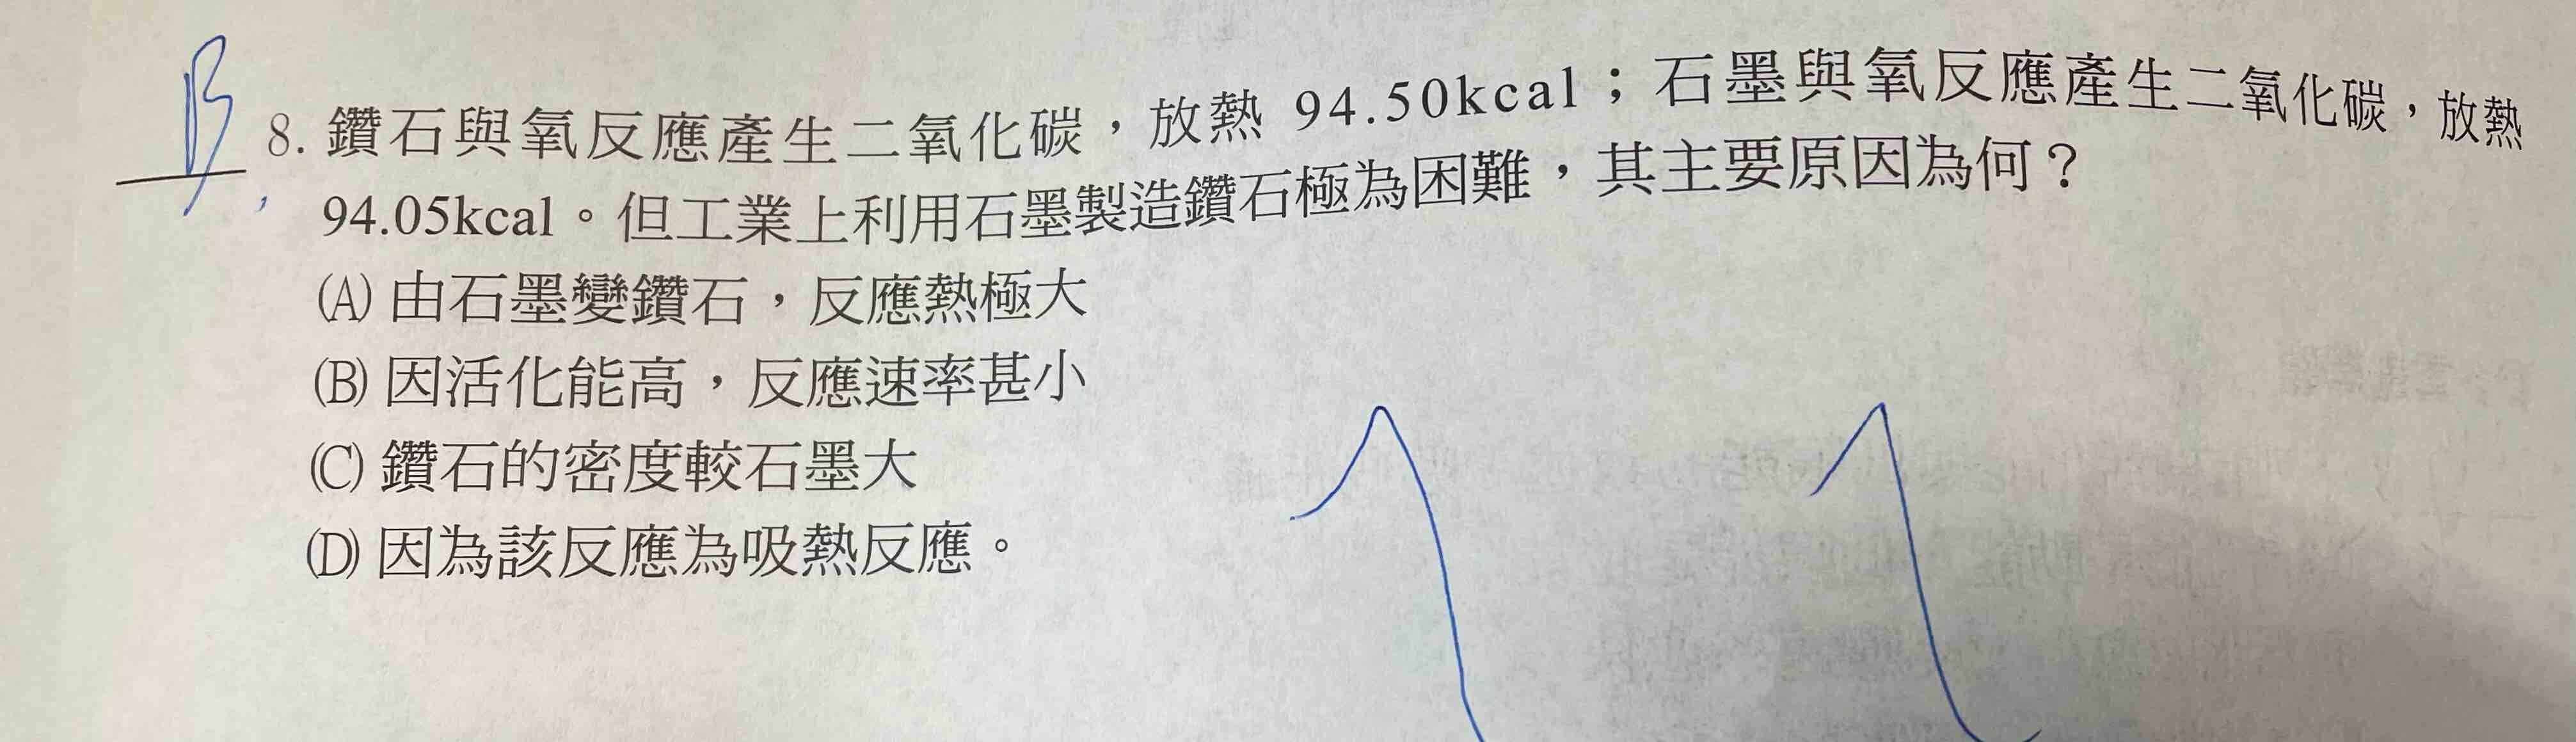 B 8. 鑽石與氧反應產生二氧化碳，放熱 94.50kcal；石墨與氧反應產生二氧化碳，放熱
94.05kcal。但工業上利用石墨製造鑽石極為困難，其主要原因為何？
(A) 由石墨變鑽石，反應熱極大
(B) 因活化能高，反應速率甚小
(C) 鑽石的密度較石墨大
(D) 因為該反應為吸熱反應。